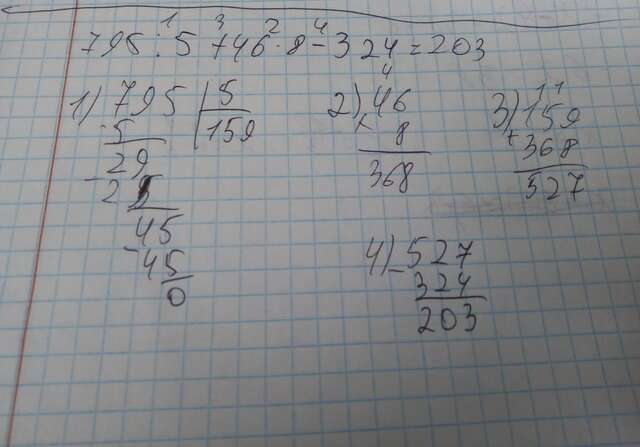 1 3 2 4
795:5+46·8-324=203
1) 795 | 5
-5 159
29
-25
45
-45
0
2) 46
× 8
368
4
3) 159
+368
527
11
4) -527
324
203